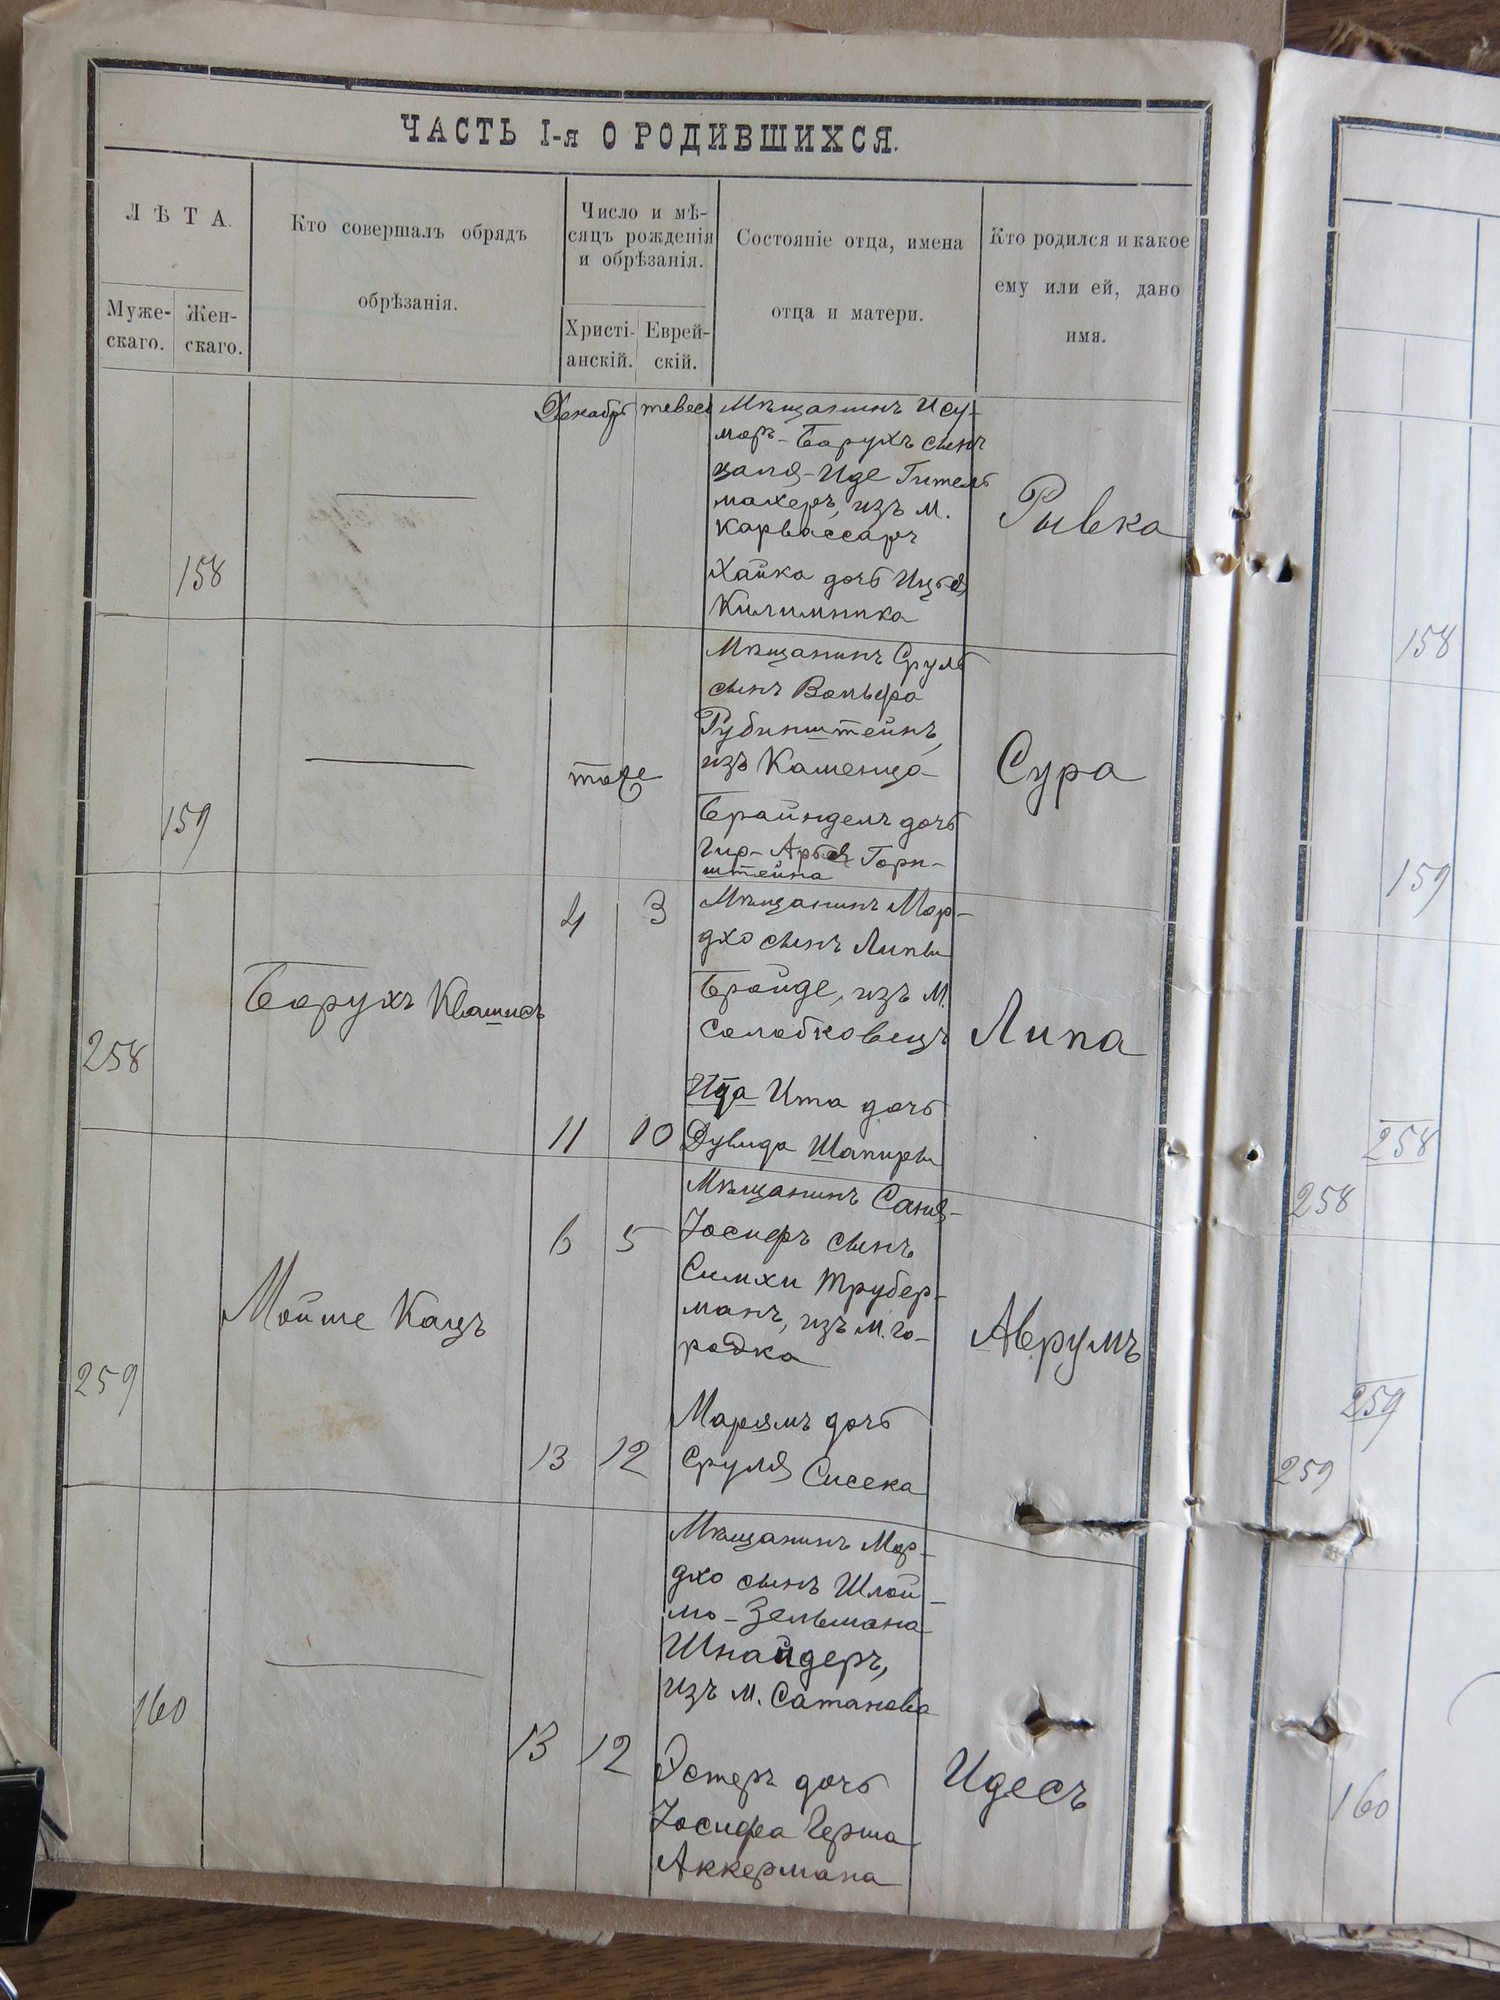 ЧАСТЬ I-я О РОДИВШИХСЯ.
ЛѢТА.
Муже-
скаго.
Жен-
скаго.
Кто совершалъ обрядъ
обрѣзанія.
Число и мѣ-
сяцъ рожденія
и обрѣзанія.
Христі-
анскій.
Еврей-
скій.
Состояніе отца, имена
отца и матери.
Кто родился и какое
ему или ей, дано
имя.
158
Декабрь
тевесъ
МѣщанинъИсу-
моръ-Борухъ сынъ
Цаля-Иде Гитель
махеръ, изъ м.
Карвассаръ
Хайка дочь Ицья
Килимника
Рывка
158
159
тоже
Мѣщанинъ Сруль
сынъ Вольфа
Рубинштейнъ,
изъ Каменца
Брайнделъ дочь
Гир-Арья Горн-
штейна
Сура
159
258
Борухъ Квашисъ
4
3
11
10
Мѣщанинъ Мор-
дхо сынъ Липы
Бройде, изъ м.
Солобковецъ
Ида Ита дочь
Дувида Шапиры
Липа
258
258
259
Мойше Кацъ
6
5
13
12
Мѣщанинъ Саня-
Іосифъ сынъ
Симхи Трубер-
манъ, изъ м. Го-
родка
Марямъ дочь
Сруля Сисека
Аврумъ
259
259
160
13
12
Мѣщанинъ Мор-
дхо сынъ Шлой-
мо-Зельмана
Шнайдеръ,
изъ м. Сатанова
Эстеръ дочь
Іосифа Герша
Аккермана
Идесъ
160